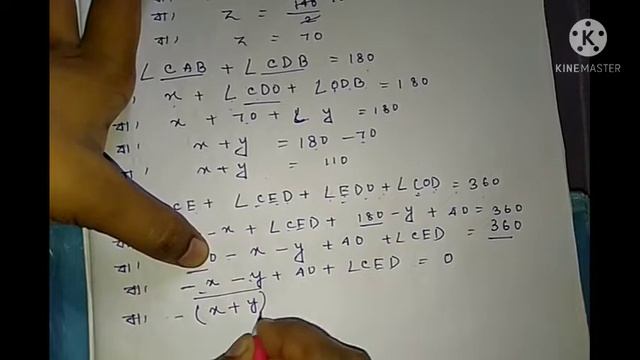 বা, z = 140/2
বা, z = 70
KINEMASTER
∠CAB + ∠CDB = 180
, x + ∠CDO + ∠ODB = 180
বা, x + 70 + ∠y = 180
বা, x + y = 180 - 70
বা, x + y = 110
CE + ∠CED + ∠EDO + ∠COD = 360
- x + ∠CED + 180 - y + 40 = 360
0 - x - y + 40 + ∠CED = 360
বা, - x - y + 40 + ∠CED = 0
বা, - (x + y)